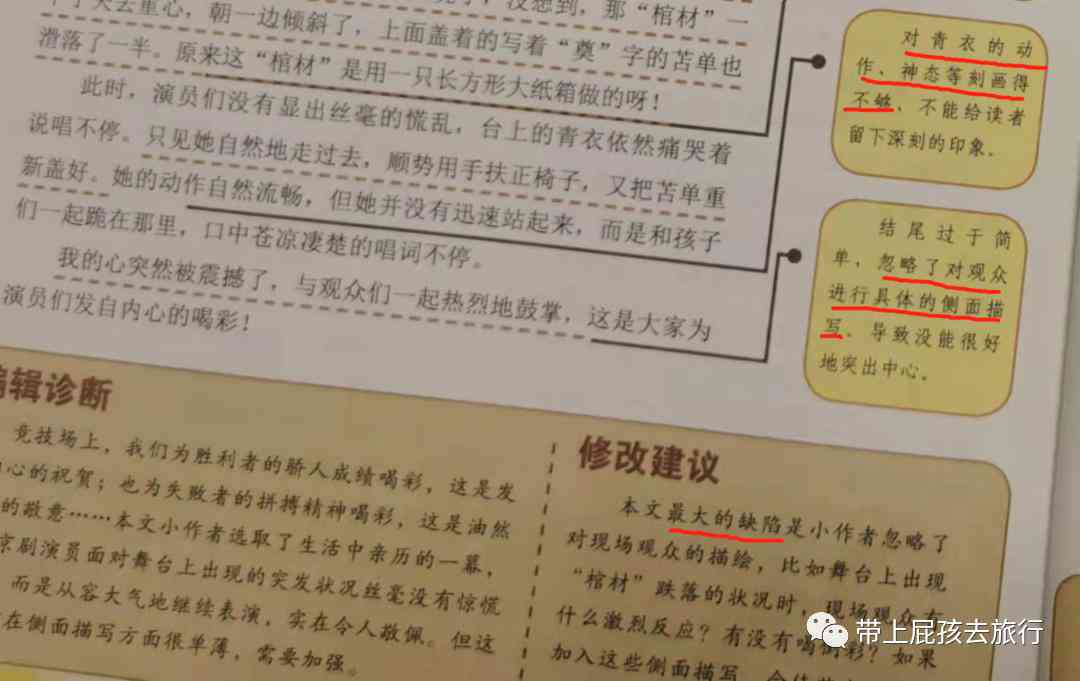 失去重心，朝一边倾斜了，上面盖着的写着“奠”字的苫单也
滑落了一半。原来这“棺材”是用一只长方形大纸箱做的呀！
此时，演员们没有显出丝毫的慌乱，台上的青衣依然痛哭着
说唱不停。只见她自然地走过去，顺势用手扶正椅子，又把苫单重
新盖好。她的动作自然流畅，但她并没有迅速站起来，而是和孩子
们一起跪在那里，口中苍凉凄楚的唱词不停。
我的心突然被震撼了，与观众们一起热烈地鼓掌，这是大家为
演员们发自内心的喝彩！
对青衣的动
作、神态等刻画得
不够、不能给读者
留下深刻的印象。
结尾过于简
单，忽略了对观众
进行具体的侧面描
写。导致没能很好
地突出中心。
编辑诊断
竞技场上，我们为胜利者的骄人成绩喝彩，这是发
心的祝贺；也为失败者的拼搏精神喝彩，这是油然
的敬意……本文小作者选取了生活中亲历的一幕，
京剧演员面对舞台上出现的突发状况丝毫没有惊慌
而是从容大气地继续表演，实在令人敬佩。但这
在侧面描写方面很单薄，需要加强。
修改建议
本文最大的缺陷是小作者忽略了
对现场观众的描绘，比如舞台上出现
“棺材”跌落的状况时，现场观众有
什么激烈反应？有没有喝倒彩？如果
加入这些侧面描写
带上屁孩去旅行